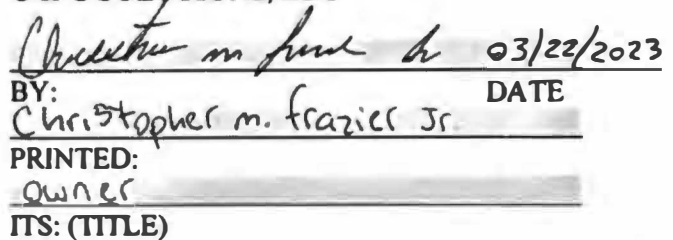 03/22/2023
BY: DATE
Christopher m. frazier Jr.
PRINTED:
owner
ITS: (TITLE)